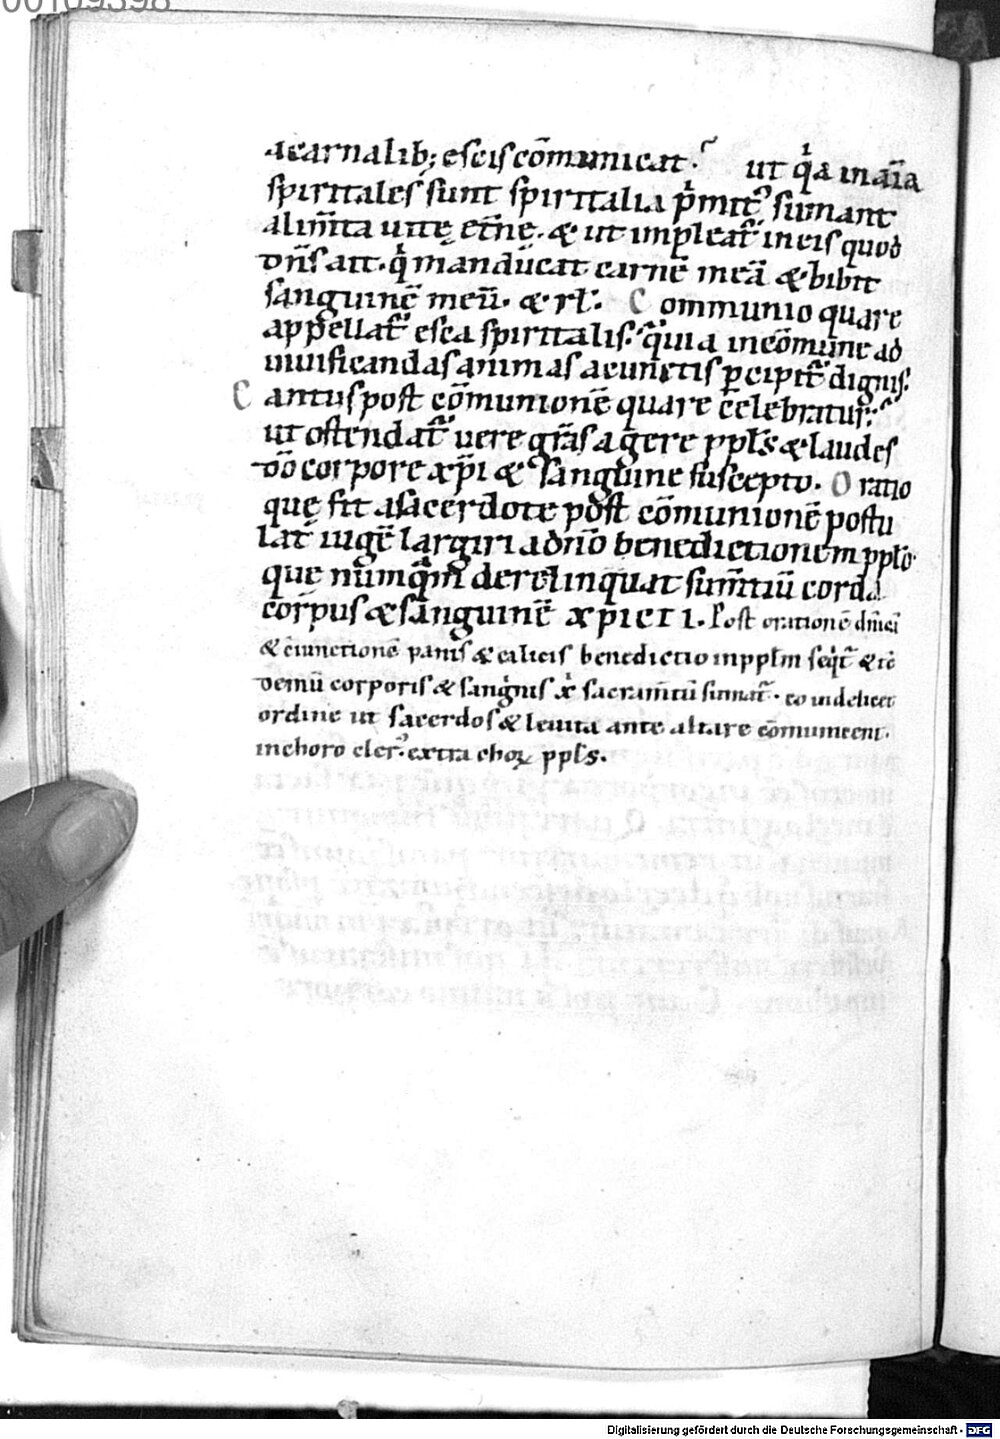 00109398
acarnalib; escis cōmunicat. ut qͥa in aīa
spiritales sunt spiritalia pͥmitꝰ sumant
alim̄ta uitę etn̄ę. & ut impleat᷑ in eis quod
dn̄s ait. qͥ manducat carnē meā & bibit
sanguinē meū. & rl̄. Communio quare
appellat᷑ esca spiritalis. quia in cōmune ad
uiuificandas animas a cunctis ꝑcipit᷑ dignis.
Cantus post cōmunionē quare celebratur.
ut ostendat᷑ uere gr̄as agere ppl̄s & laudes
dō corpore xp̄i & sanguine suscepto. Oratio
quę fit a sacerdote post cōmunionē postu
lat iugē largiri a dn̄o benedictionem ppl̄o
quę numquā derelinquat sum̄tiū corda
corpus & sanguinē xpicti. Post orationē dn̄icā
& ciunctionē panis & calicis benedictio in ppl̄m seqͥt᷑ & tc̄
demū corporis & sangͥnis xp̄ī sacram̄tū sumat᷑. eo uidelicet
ordine ut sacerdos & leuita ante altare cōmunicent.
in choro clerꝰ. extra chorꝫ ppl̄s.
Digitalisierung gefördert durch die Deutsche Forschungsgemeinschaft - DFG